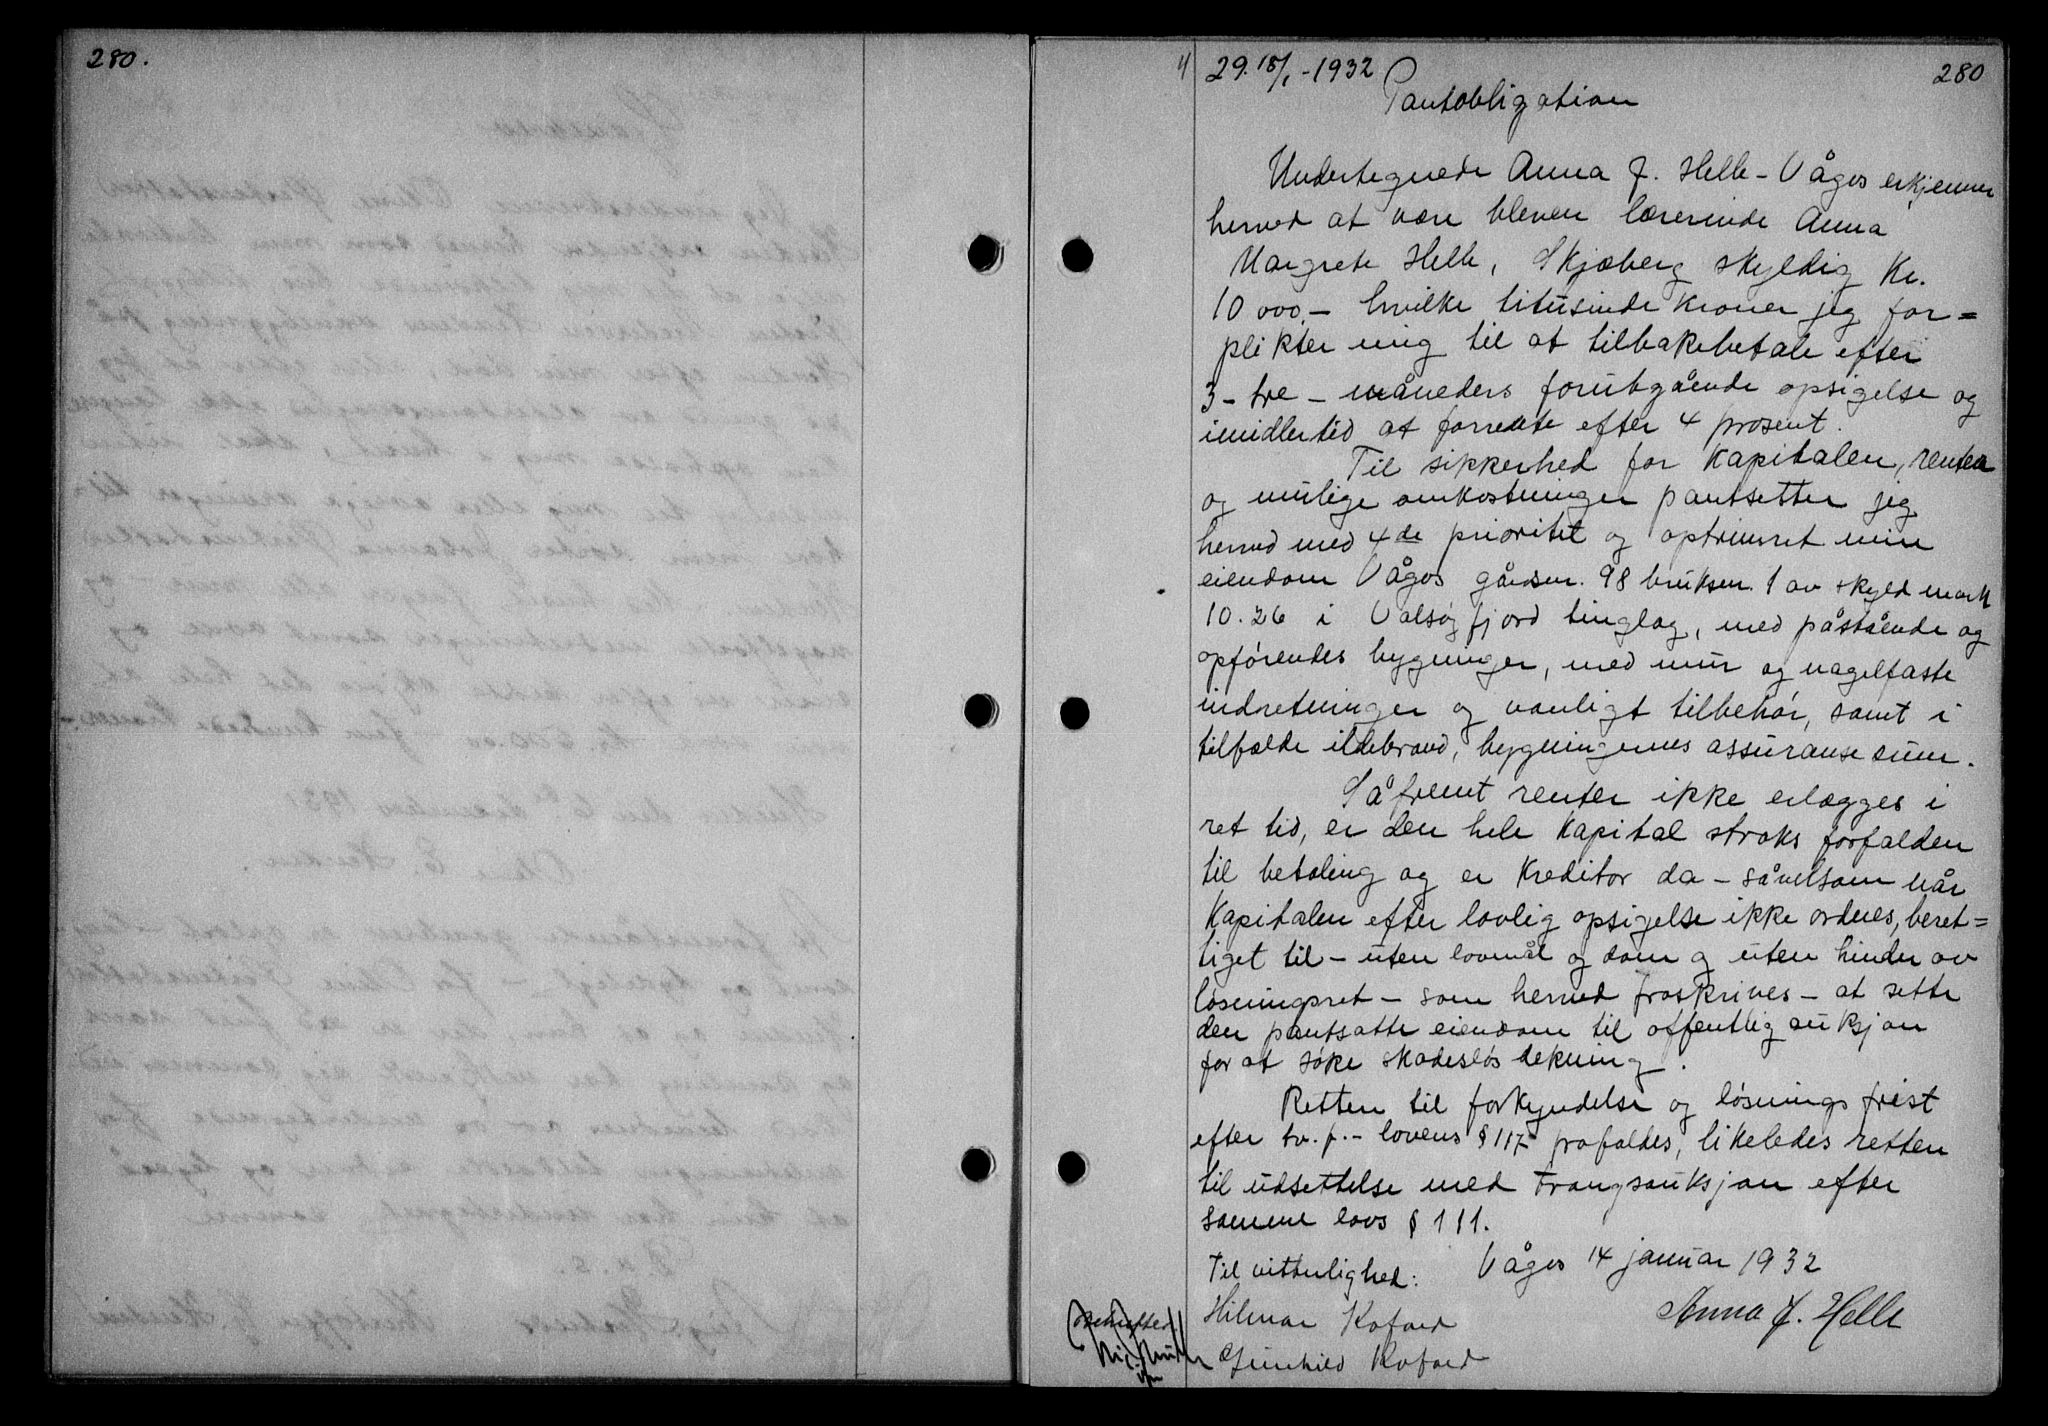 280.
4 29. 18/1 - 1932 280
Pantobligation
Undertegnede Anna J. Helle - Vågos erkjenner
herved at være bleven lærerinde Anna
Margrete Helle, Skjæberg skyldig Kr.
10 000.- hvilke titusinde kroner jeg for=
plikter mig til at tilbakebetale efter
3 - tre - måneders forutgående opsigelse og
imidlertid at forrente efter 4 prosent.
Til sikkerhed for kapitalen, renter
og mulige omkostninger pantsetter jeg
herved med 4de prioritet og optrinsret min
eiendom Vågos gårdsnr. 98 bruksnr. 1 av skyld mark
10.26 i Valsøyfjord tinglag, med påstående og
opførendes bygninger, med mur og nagelfaste
indretninger og vanligt tilbehør, samt i
tilfælde ildebrand, bygningenes assuranse sum.
Såfremt renter ikke erlægges i
ret tid, er den hele kapital straks forfalden
til betaling og er kreditor da - såvelsom når
kapitalen efter lovlig opsigelse ikke ordnes, beret=
tiget til - uten lovmål og dom og uten hinder av
løsningsret - som herved fraskrives - at sette
den pantsatte eiendom til offentlig auksjon
for at søke skadesløs dekning.
Retten til forkyndelse og løsningsfrist
efter tv. f. - lovens § 117 frafaldes, likeledes retten
til udsettelse med tvangsauksjon efter
samme lovs § 111.
Til vitterlighed: Vågos 14 januar 1932
Hilmar Kofoed Anna J. Helle
Gunhild Kofoed